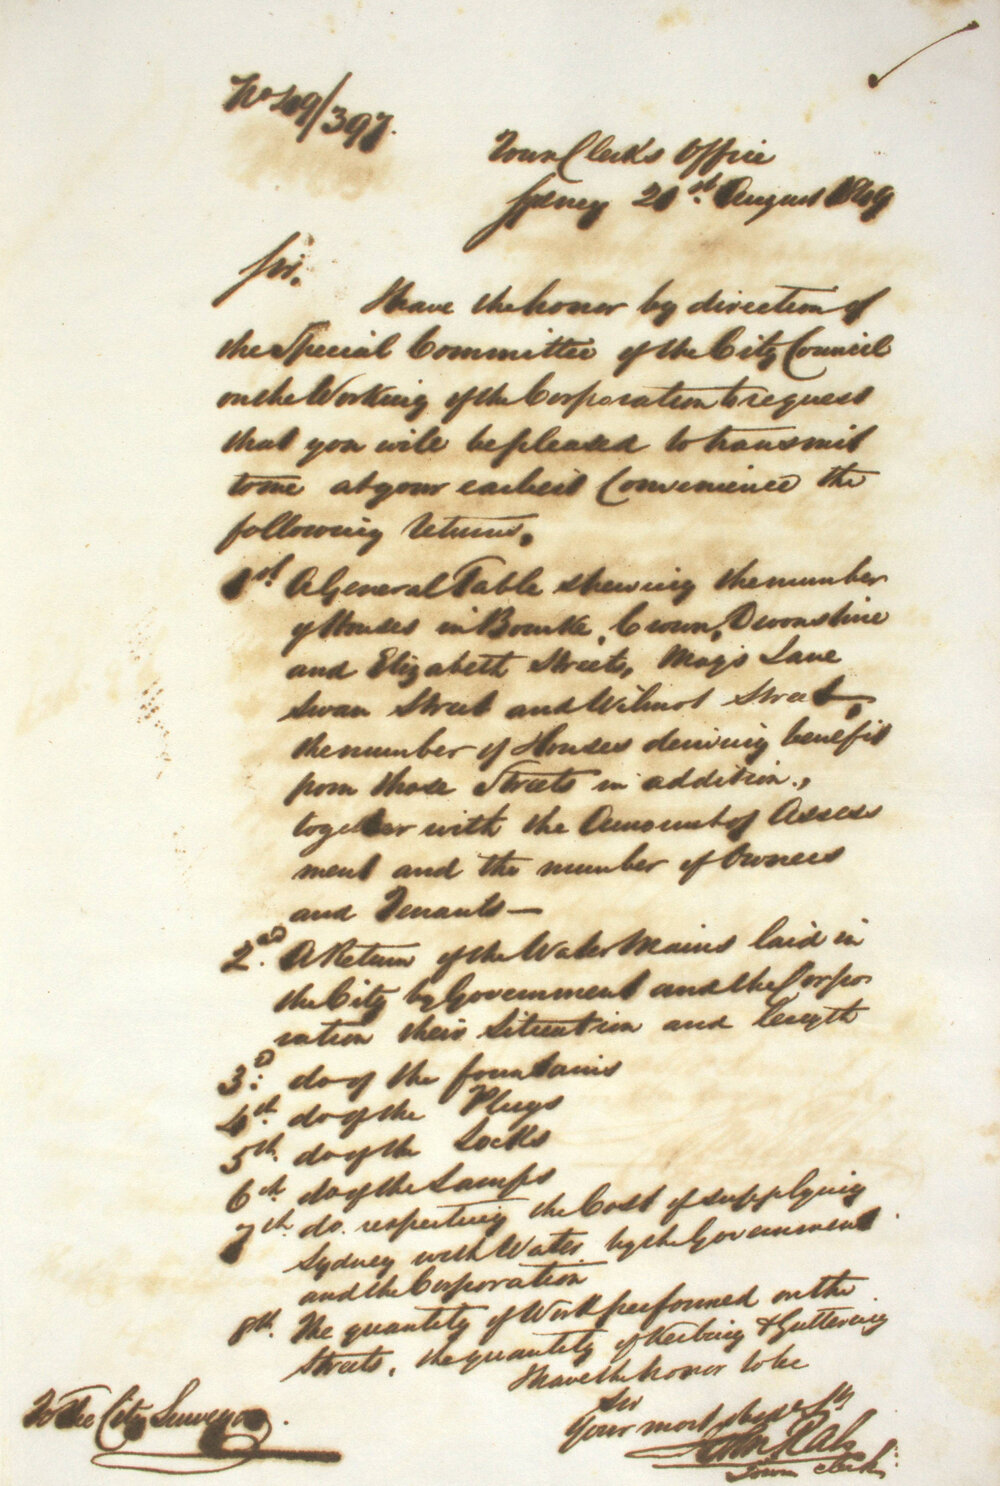 No 49/397.
Town Clerk's Office
Sydney 21st August 1849
Sir.
I have the honor by direction of
the Special Committee of the City Council
on the Working of the Corporation to request
that you will be pleased to transmit
to me at your earliest Convenience the
following returns.
1st A General Table shewing the number
of Houses in Bourke, Crown, Devonshire
and Elizabeth Streets, Mays Lane
Swan Street and Wilmot Street,
the number of Houses deriving benefit
from those Streets in addition,
together with the Amount of Assess
ment and the number of Owners
and Tenants—
2nd. A Return of the Water Mains laid in
the City by Government and the Corpo-
ration their Situation and length
3d: do of the fountains
4th. do of the Plugs
5th. do of the Locks
6th do of the Lamps
7th. do. respecting the Cost of supplying
Sydney with Water by the Government
and the Corporation
8th. The quantity of Work performed on the
Streets, the quantity of Kerbing & Guttering
I have the honor to be
Sir
Your most obedt St
John Rae
Town Clerk
To The City Surveyor.